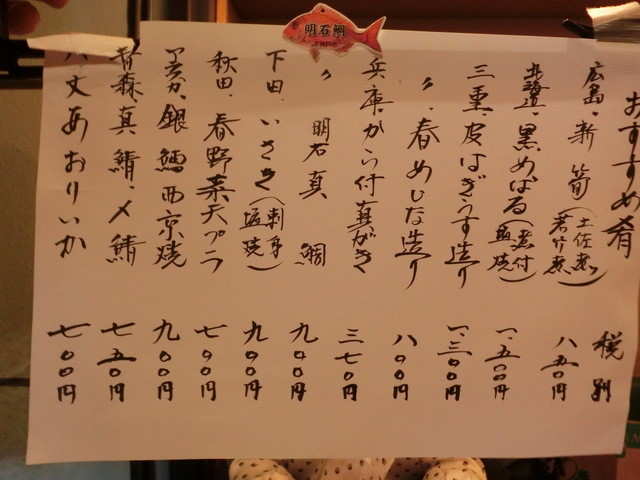 明石鯛
おすすめ肴 税別
広島、新筍(土佐煮 若竹煮) 八五〇円
北海道、黒めばる(煮付 塩焼) 一、五〇〇円
三重、皮はぎうす造り 一、三〇〇円
〃、春めじな造り 八〇〇円
兵庫、から付真がき 三七〇円
〃 明石真鯛 九〇〇円
下田、いさき(刺身 塩焼) 九〇〇円
秋田、春野菜天プラ 七〇〇円
銀鱈西京焼 九〇〇円
青森、真鯖、〆鯖 七五〇円
八丈あおりいか 七〇〇円